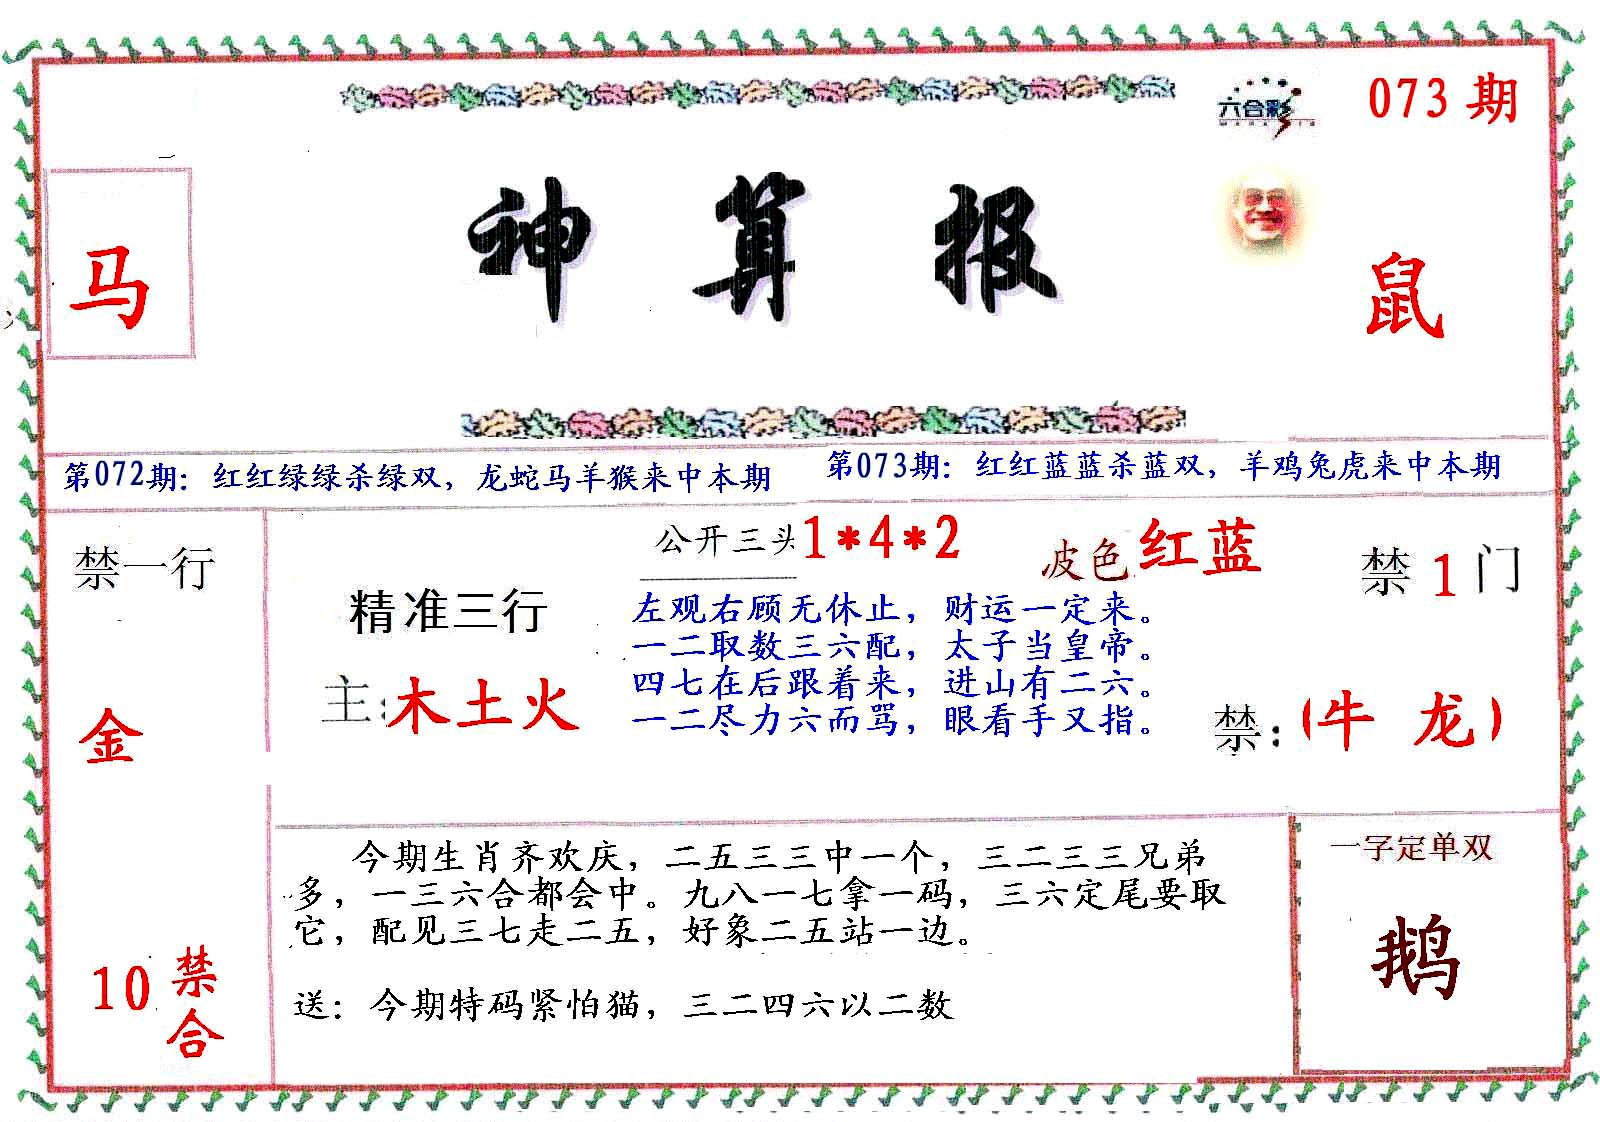 六合彩
073期
神算报
马
鼠
第072期：红红绿绿杀绿双，龙蛇马羊猴来中本期
第073期：红红蓝蓝杀蓝双，羊鸡兔虎来中本期
禁一行
金
10禁合
精准三行
主：木土火
公开三头1*4*2
波色红蓝
左观右顾无休止，财运一定来。
一二取数三六配，太子当皇帝。
四七在后跟着来，进山有二六。
一二尽力六而骂，眼看手又指。
禁1门
禁：（牛 龙）
今期生肖齐欢庆，二五三三中一个，三二三三兄弟
多，一三六合都会中。九八一七拿一码，三六定尾要取
它，配见三七走二五，好象二五站一边。
送：今期特码紧怕猫，三二四六以二数
一字定单双
鹅